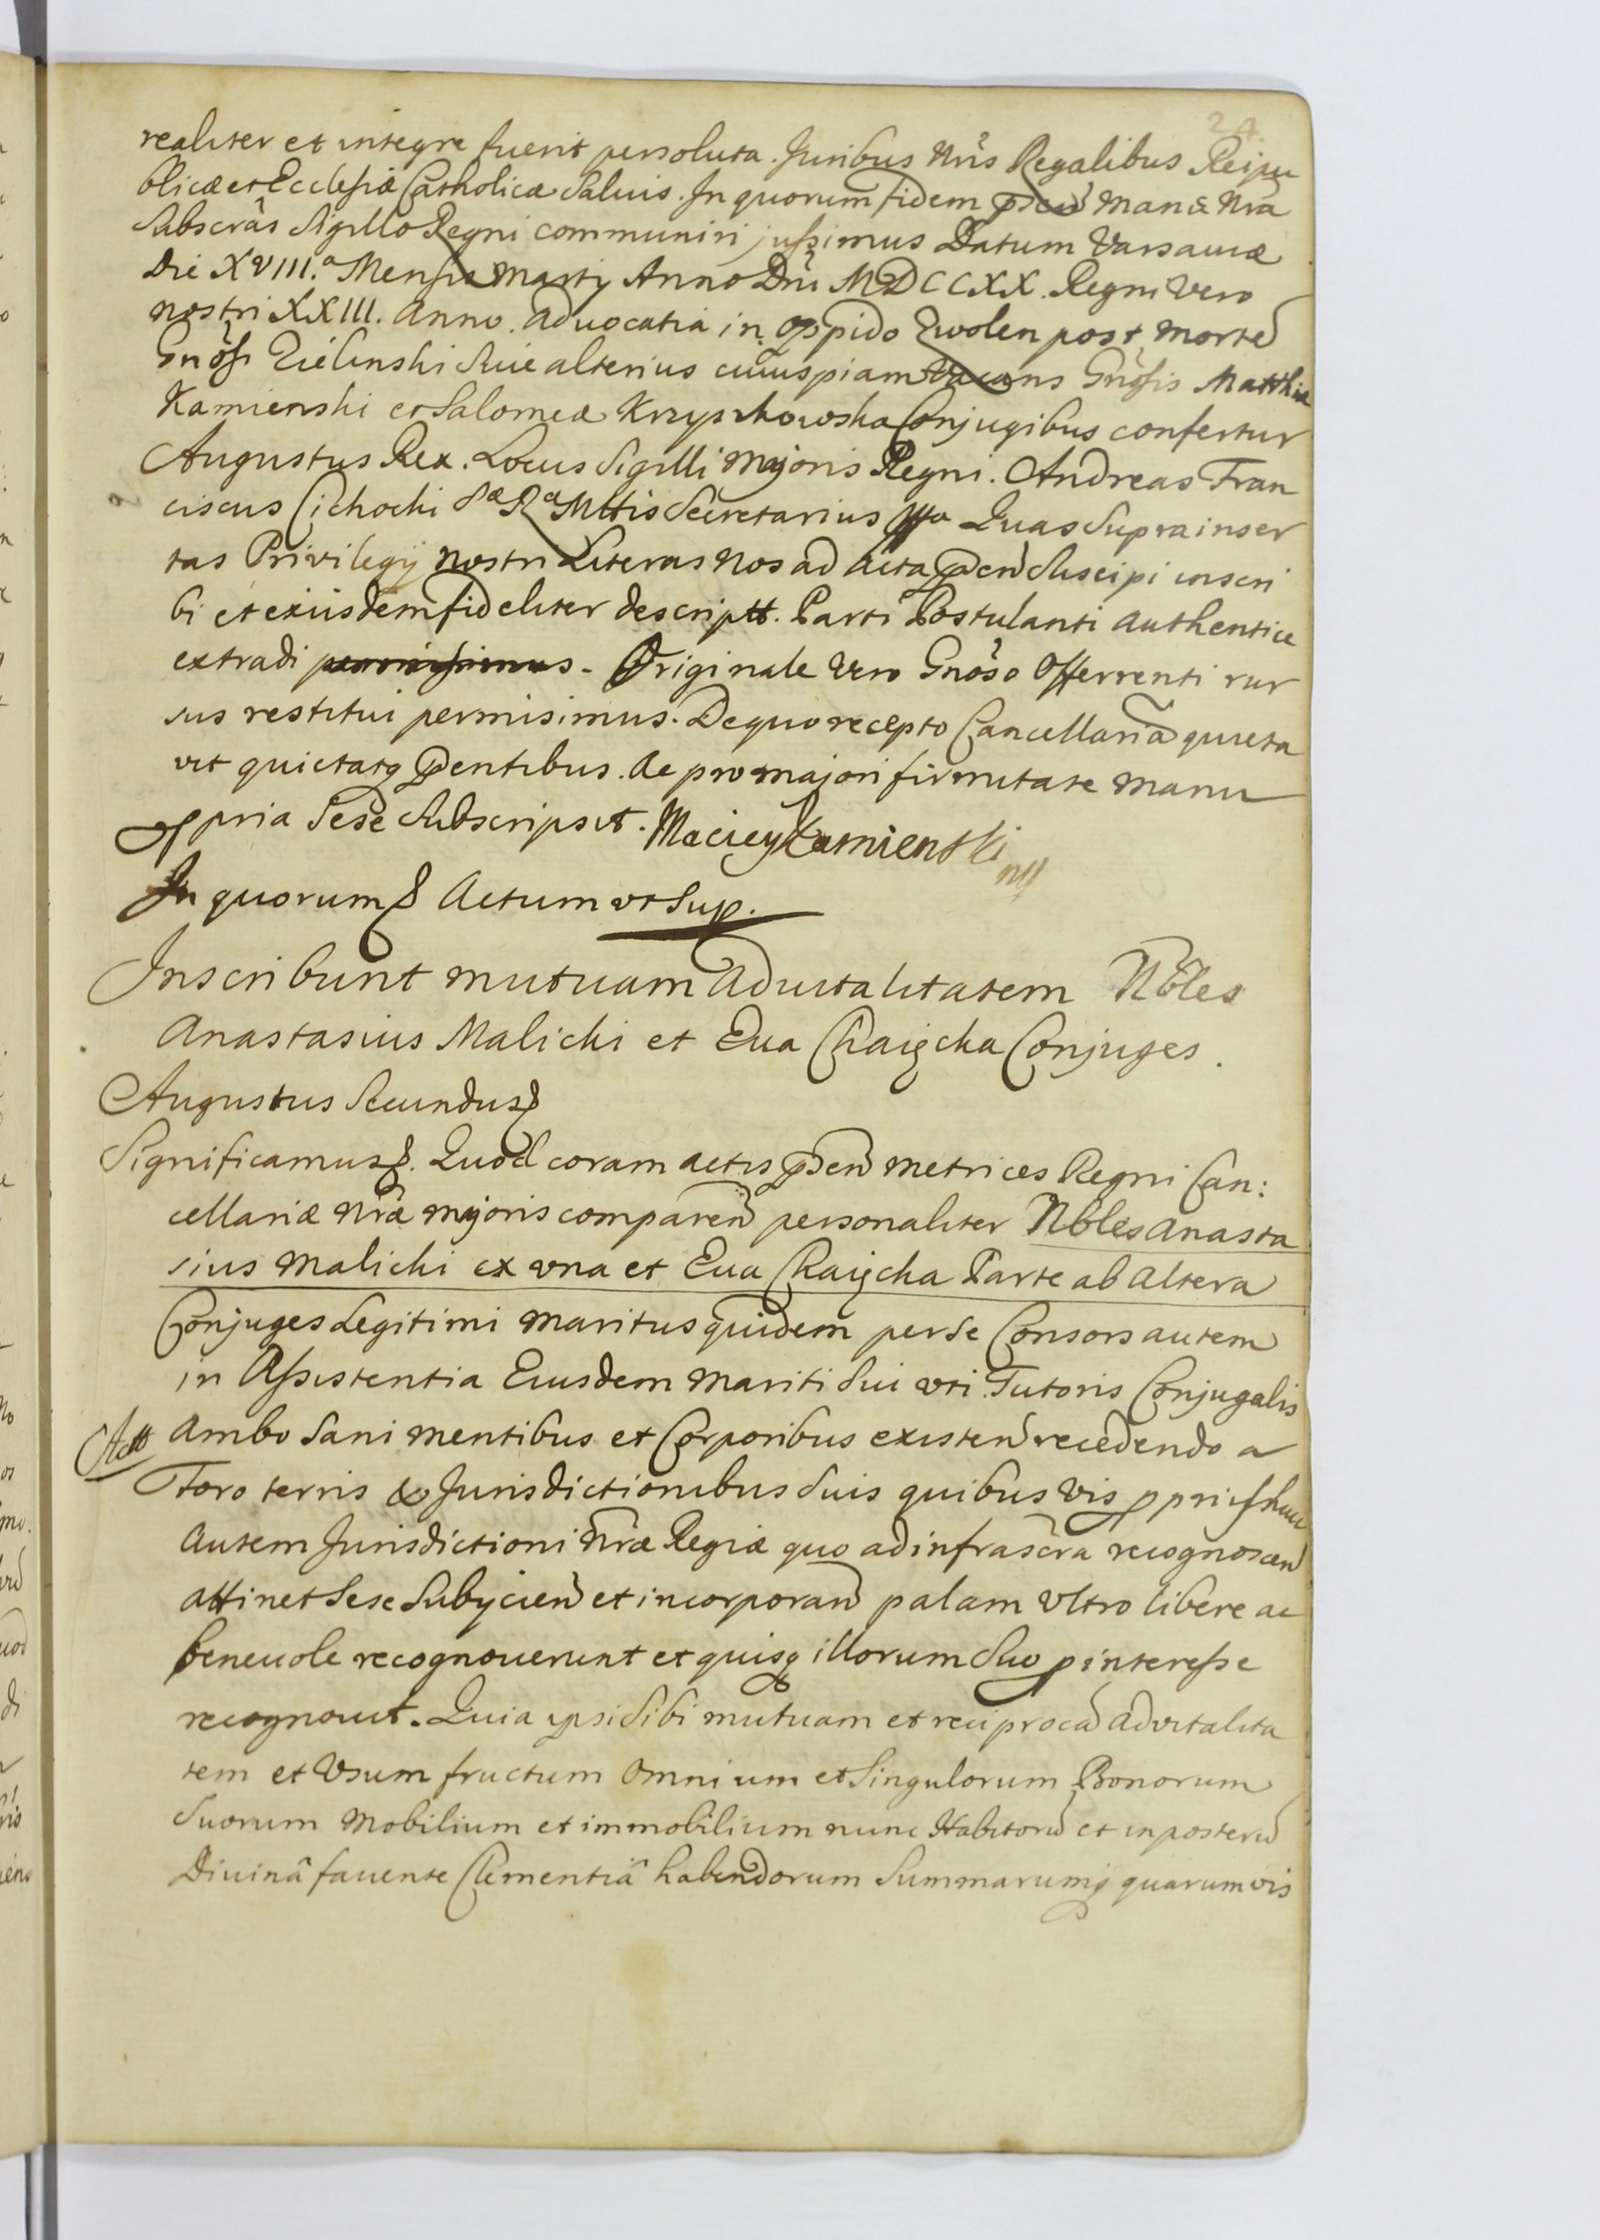 24.
realiter et integre fuerit persoluta. Juribus Nris Regalibus Reipu
blicæ et Ecclesiæ Catholicæ Salvis. In quorum fidem pñtes Manu Nrã
Subscrãs Sigillo Regni communiri jussimus Datum Varsaviæ
Die XVIII.a Mensis Martij Anno Dni MDCCXX. Regni Vero
nostri XXIII. Anno. Advocatia in oppido Zwolen post morte
Gnõsi Zielinski sive alterius cujuspiam Vacans Gnõsis Matthiæ
Kamienski et Salomeæ Krzyszkowska Conjugibus confertur
Augustus Rex. Locus Sigilli Majoris Regni. Andreas Fran
ciscus Cichocki Sæ Ræ Mttis Secretarius Quas Suprainser
tas Privilegij nostri Literas Nos ad Acta pñen Suscipi inscri
bi et exiisdem fideliter descriptt. Parti Postulanti Authentice
extradi permisimus. Originale Vero Gnõso Offerrenti rur
sus restitui permisimus. De quo recepto Cancellariã quieta
vit quietatq pñentibus. Ac pro majori firmitate manu
ppria Sese Subscripsit. Maciey Kamienski mp
In quorum Actum ut Sup.
Inscribunt mutuam Advitalitatem Nbles
Anastasius Malicki et Eva Chaięcka Conjuges.
Augustus Secundus
Significamus. Quod coram actis pñen Metrices Regni Can:
cellariæ Nræ majoris comparen personaliter Nbles Anasta
sius Malicki ex una et Eva Chaięcka Parte ab Altera
Conjuges Legitimi Maritus quidem per se Consors autem
in Assistentia Eiusdem Mariti Sui uti Tutoris Conjugalis
Ambo Sani mentibus et Corporibus existen recedendo a
Foro terris & Jurisdictionibus Suis quibusvis pprijs huic
Autem Jurisdictioni Nræ Regiæ quo ad infrascra recognoscen
attinet Sese Subijcien et incorporan palam Ultro libere ac
benevole recognoverunt et quisq illorum Suo pinteresse
recognovit. Quia ipsi Sibi mutuam et reciprocã Advitalita
tem et Usum fructum Omnium et Singulorum Bonorum
Suorum Mobilium et immobilium nunc Habitorũ et in posterũ
Divinâ favente Clementiâ habendorum Summarumq quarumvis